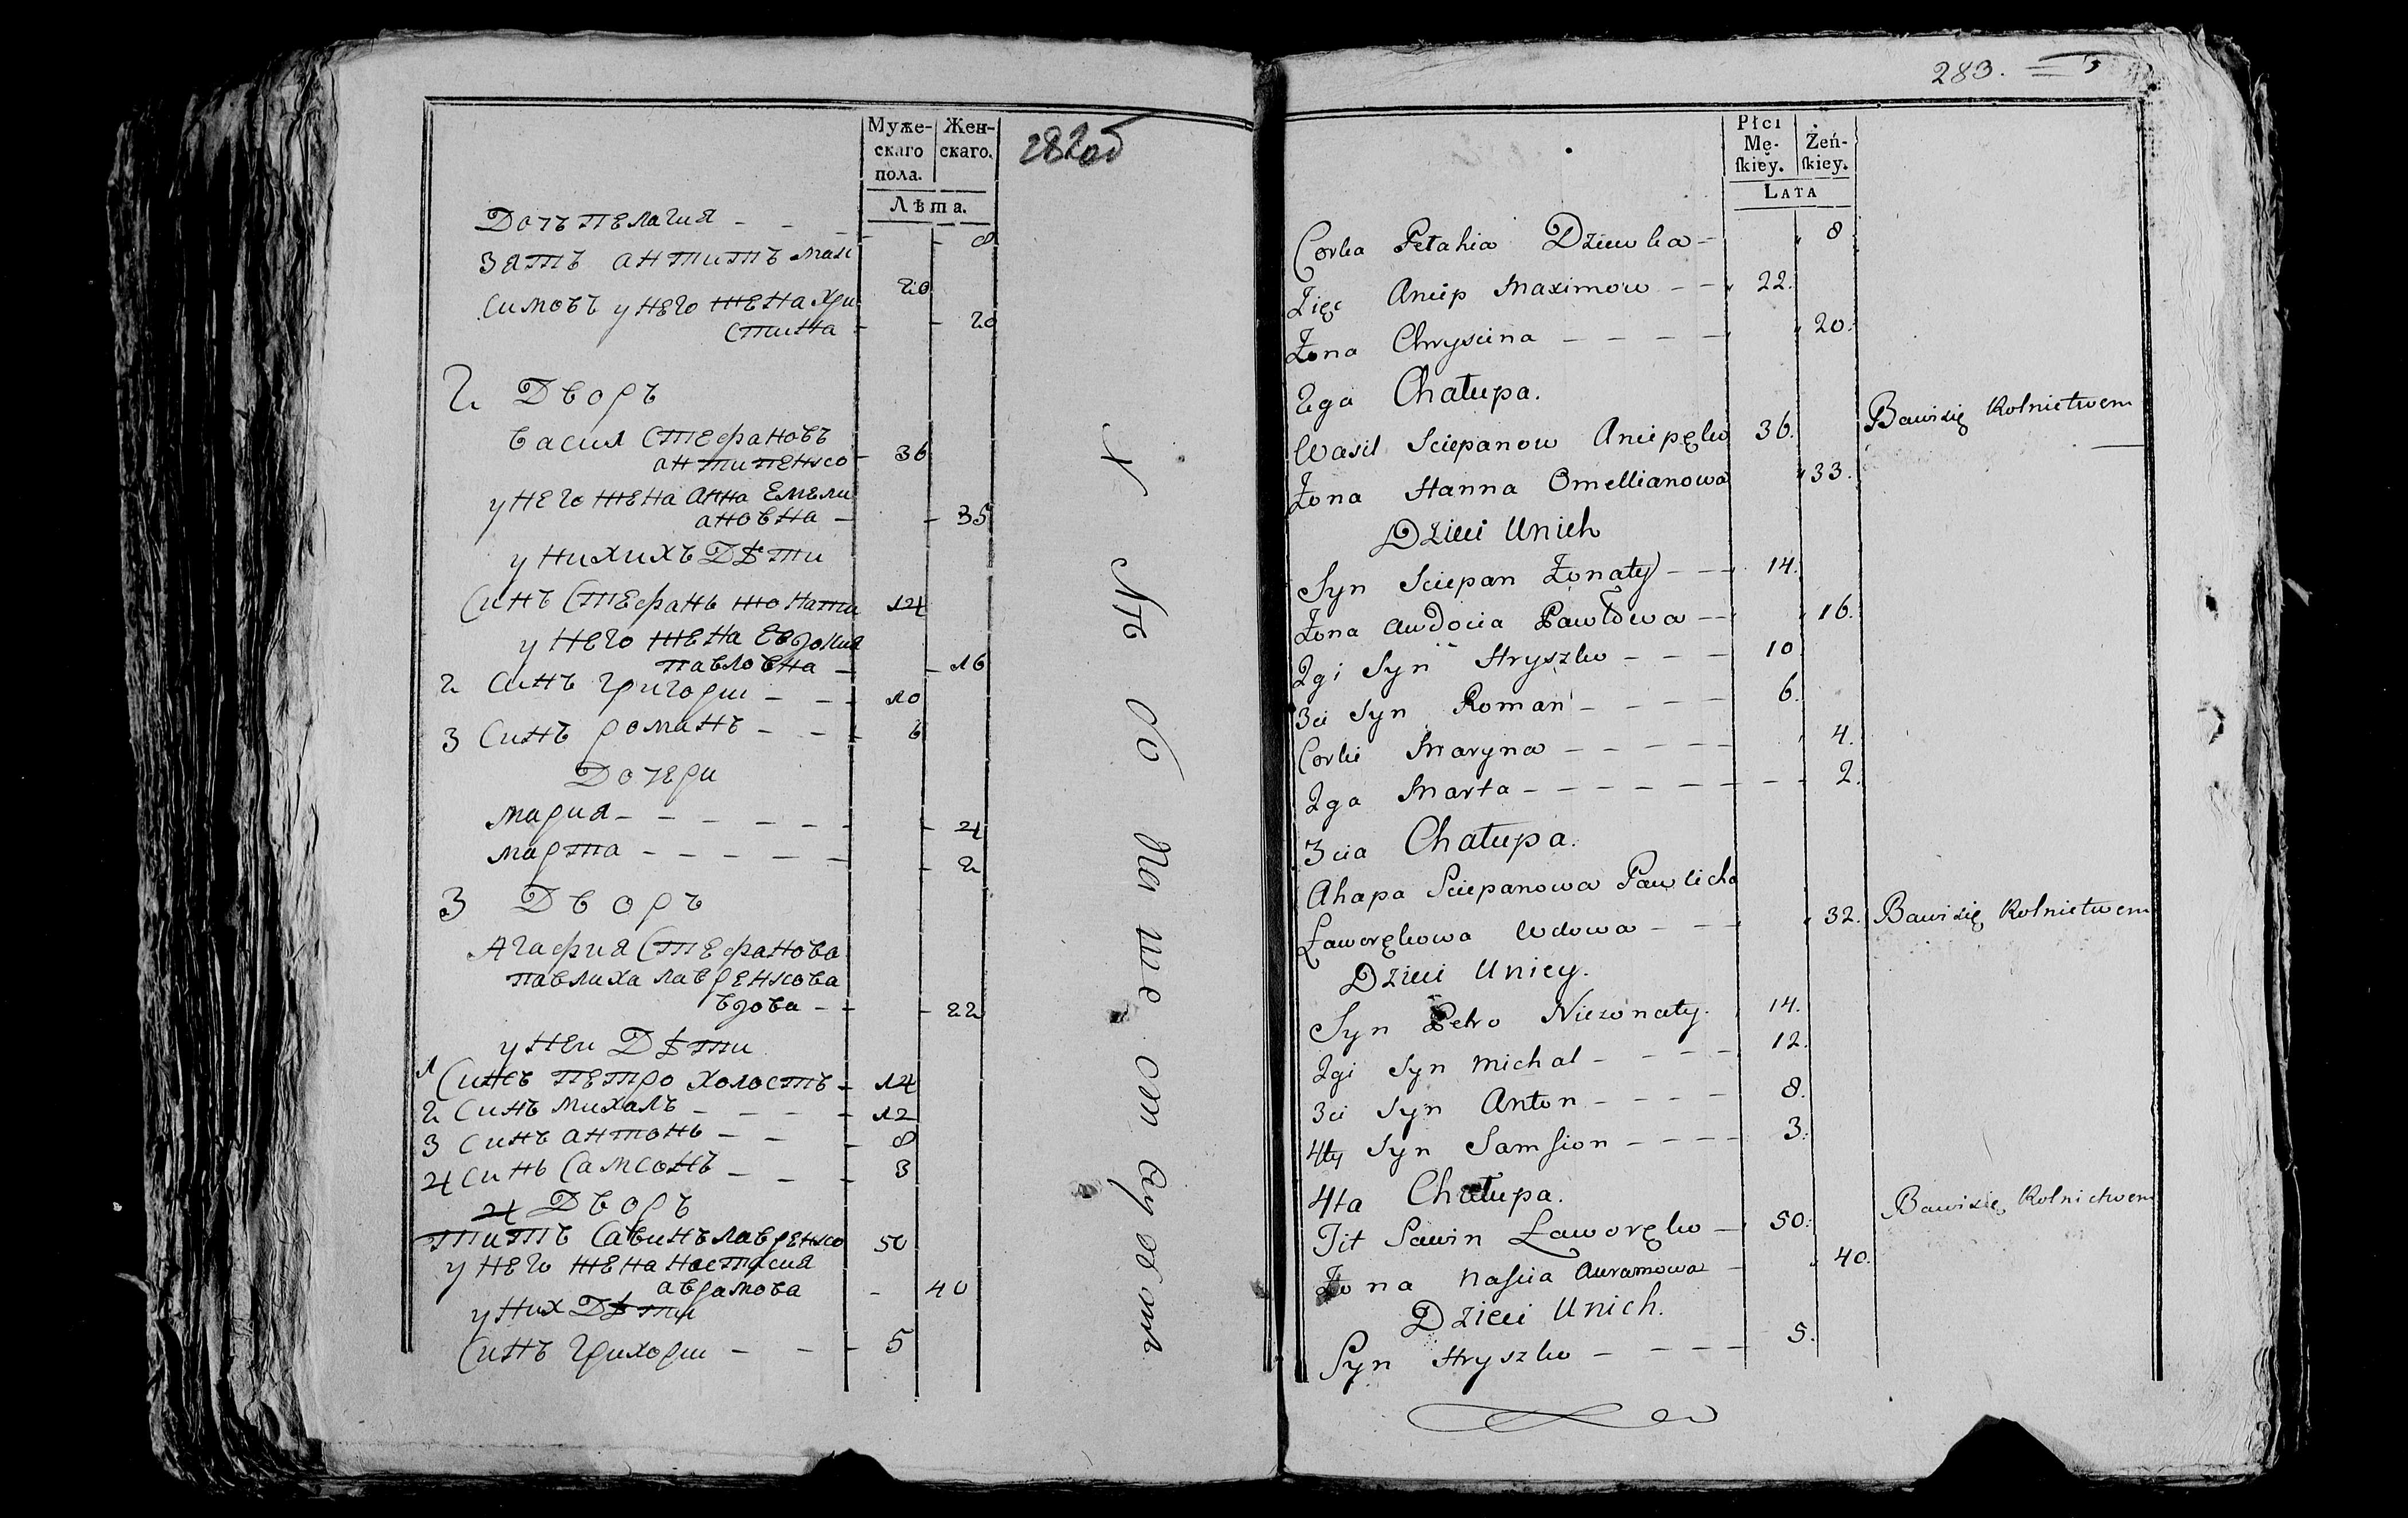 Муже-
скаго
пола.
Жен-
скаго.
Лѣта.
282об
Дочъ пелагия - - - 8
Зятъ антипъ мак
симовъ 20
у него жена хри
стина - - 20
2 Дворъ
васил Стефановъ
антипенко - 36
у него жена анна Емели
ановна - - 35
у нихихъ Дѣти
Синъ Стефанъ жонати 14
у него жена Евдокия
павловна - - 16
2 Синъ григории - - - 10
3 Синъ романъ - - - 6
Дочери
мария - - - - - - - 4
марта - - - - - - 2
3 Дворъ
Агафия Стефанова
павлиха лавренкова
вдова - - - 22
у неи Дѣти
1 Синъ петро холостъ - 14
2 Синъ михалъ - - - - 12
3 Синъ антонъ - - - 8
4 Синъ Самсонъ - - - 3
4 Дворъ
титъ Савинъ лавренко 50
у него жена настасия
аврамова - 40
у них Дѣти
Синъ григории - - - 5
283.
Płci
Mę-
ſkiey.
Żeń-
ſkiey.
LATA
Corka Pelahia Dziewka - 8
Zięc Ancip Maximow - - 22.
Żona Chryscina - - - - 20.
2ga Chałupa.
Wasil Sciepanow Ancipęko 36. Bawisię Rolnictwem
Żona Hanna Omellianowa 33.
Dzieci Unich
Syn Sciepan Żonaty - - - 14.
Żona Awdocia Pawłowa - - 16.
2gi Syn Hryszko - - - 10
3ci Syn Roman - - - - 6.
Corki Maryna - - - - - 4.
2ga Marta - - - - - - - - 2.
3cia Chałupa.
Ahapa Sciepanowa Pawlicha
Ławorękowa Wdowa - - - 32. Bawisię Rolnictwem
Dzieci Uniey.
Syn Petro Niezonaty. 14.
2gi Syn Michal - - - - 12.
3ci Syn Anton - - - - 8.
4ty Syn Samſion - - - - 3.
4ta Chałupa.
Tit Sawin Ławoręko - 50. Bawisię Rolnictwem
Żona Naſcia Auramowa - 40.
Dzieci Unich.
Syn Hryszko - - - - 5.